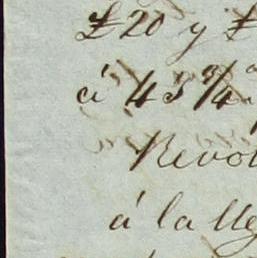 £20 y £
á 43 3/4
Revol
á la lleg